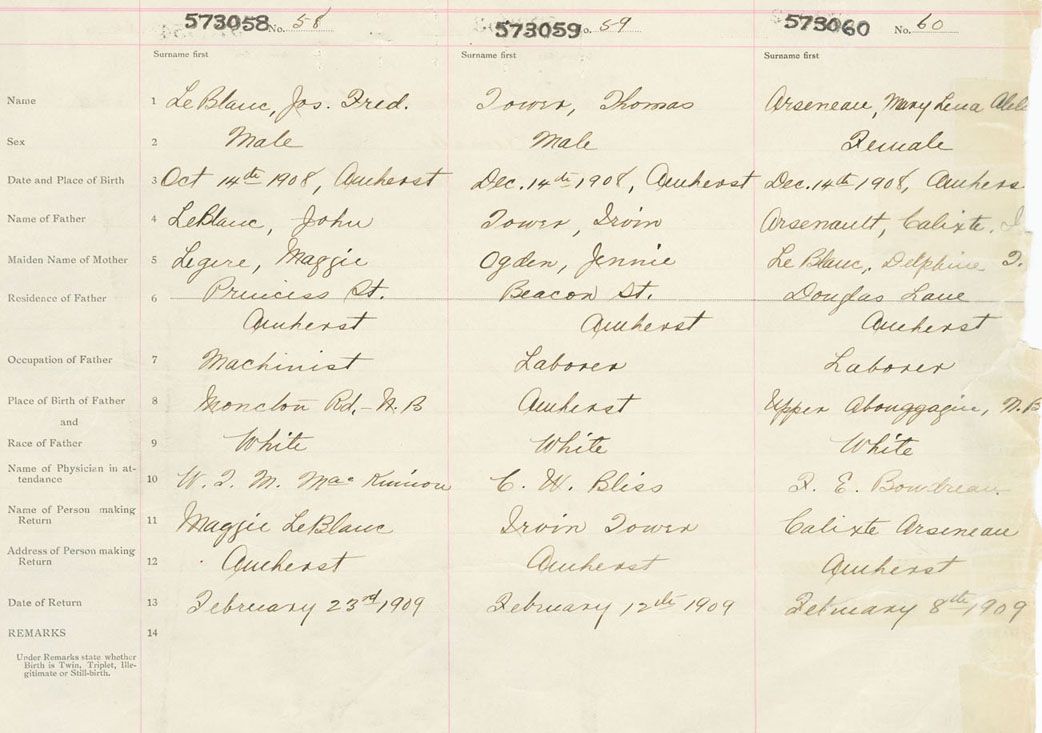 573058 No. 58 573059 No. 59 573060 No. 60
Surname first Surname first Surname first
Name 1 LeBlanc, Jos. Fred. Tower, Thomas Arseneau, Mary Lena
Sex 2 Male Male Female
Date and Place of Birth 3 Oct 14th 1908, Amherst Dec. 14th 1908, Amherst Dec. 14th 1908, Amhers
Name of Father 4 LeBlanc, John Tower, Irvin Arsenault, Calixte.
Maiden Name of Mother 5 Legere, Maggie Ogden, Jennie LeBlanc, Delphine
Residence of Father 6 Princess St. Beacon St. Douglas Lane
Amherst Amherst Amherst
Occupation of Father 7 Machinist Laborer Laborer
Place of Birth of Father 8 Moncton Rd,- N.B Amherst Upper Abouggagin, N.B
and
Race of Father 9 White White White
Name of Physician in at-
tendance 10 W. T. M. MacKinnon C. W. Bliss F. E. Boudreau
Name of Person making
Return 11 Maggie LeBlanc Irvin Tower Calixte Arseneau
Address of Person making
Return 12 Amherst Amherst Amherst
Date of Return 13 February 23rd 1909 February 12th 1909 February 8th 1909
REMARKS 14
Under Remarks state whether
Birth is Twin, Triplet, Ille-
gitimate or Still-birth.